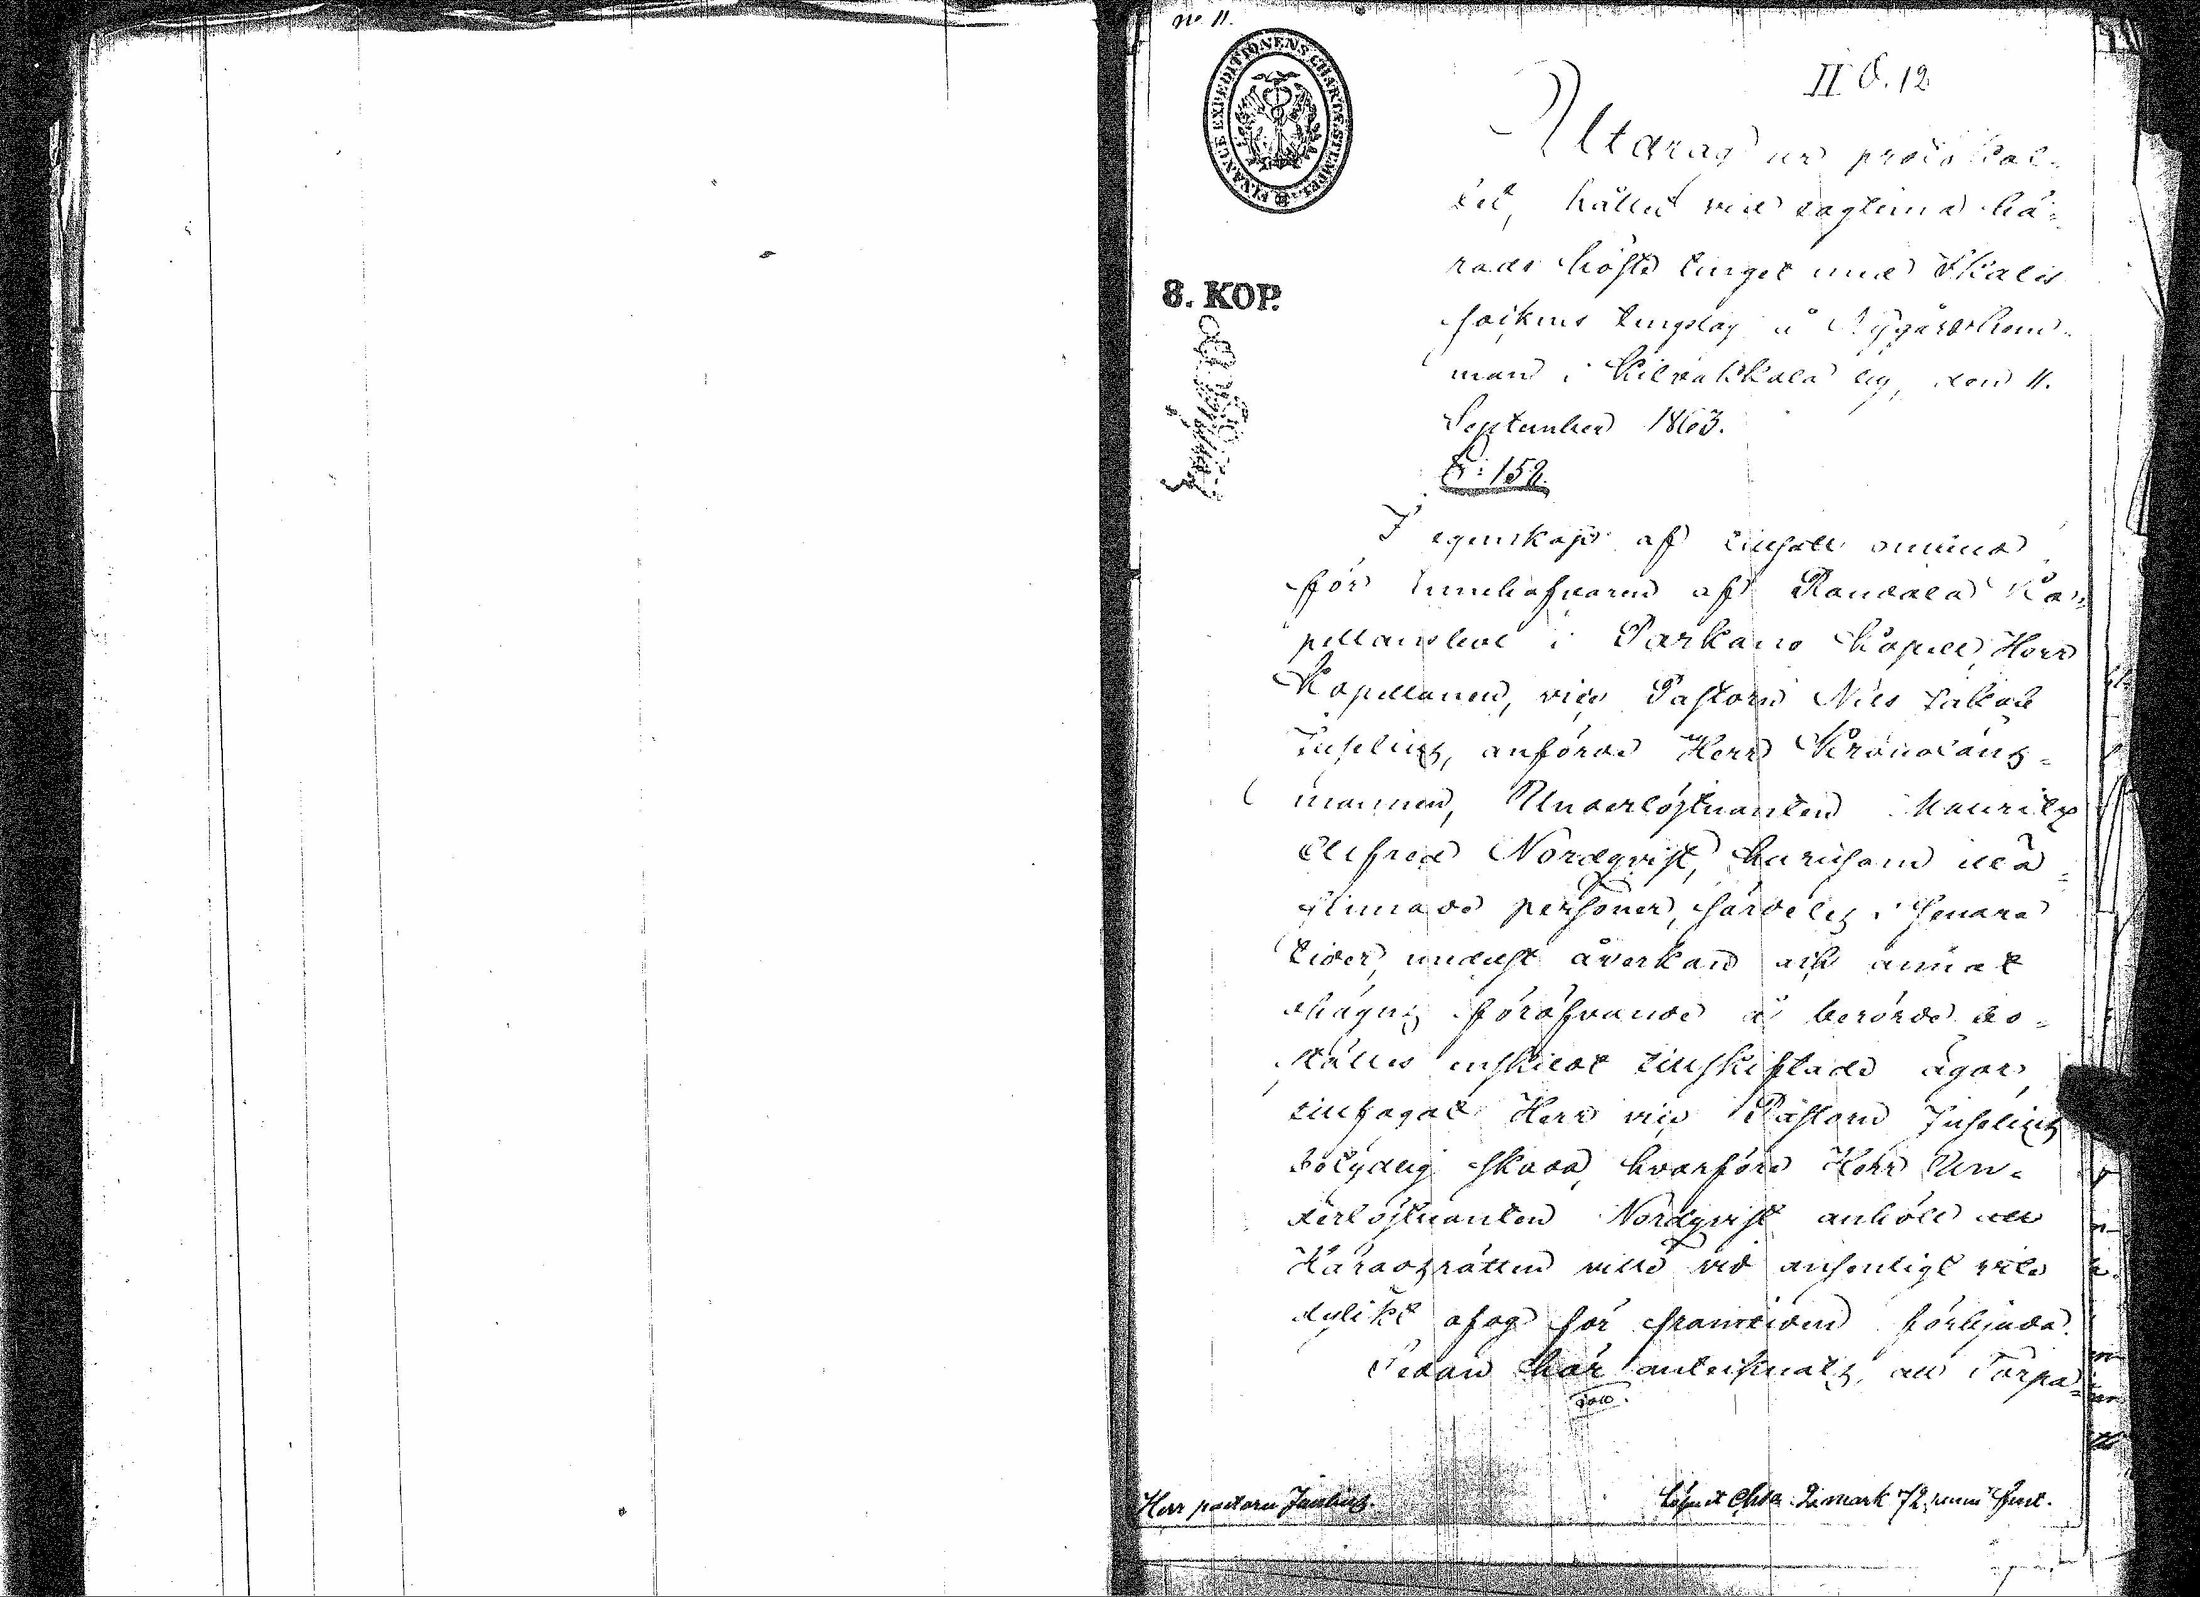 No 11.
II O. 12
FINANCE EXPEDITIONENS CHARTÆ STEMPEL
8. KOP.
Utdrag ur protokol-
let, hållet vid lagtima hä-
rads höste tinget med Ikalis
sockens tingslag å Nygårdshem-
man i Kilvakkala by, den 11.
September 1863.
§: 152.
I egenskap af tillsatt ombud
för innehafvaren af Kapellans Ka-
pellansbol i Parkano Kapell, Herr
Kapellanen, vice Pastorn Nils Jakob
Inselius, anförde Herr Kronoläns-
mannen, Underlöjtnanten Mauritz
Alfred Nordqvist, hurusom illa
sinnade personer, särdeles i senare
tider, medelst åverkan och annat
ohägn föröfvande å berörde bo-
ställes enskildt tillskiftade ägor,
tillfogat Herr vice Pastorn Inselius
betydlig skada, hvarföre Herr Un-
derlöjtnanten Nordqvist anhöll att
Häradsrätten ville vid ansenligt vite
dylikt ofog för framtiden förbjuda.
Sedan här antecknats, att Torpa-
Herr pastorn Inselius.
Lösen et Chta 2 mark 72 penni Finst.